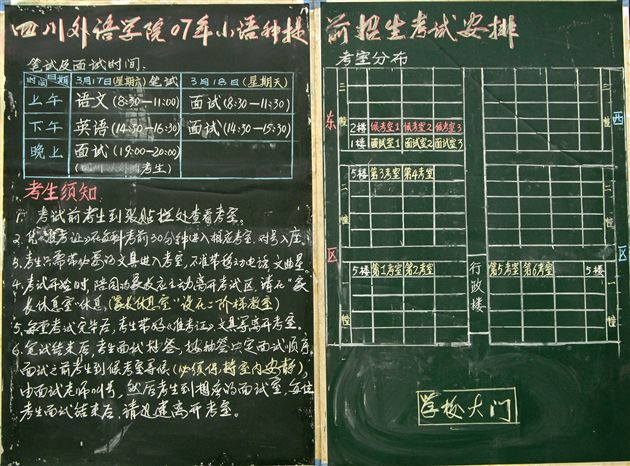 四川外语学院07年小语种提前招生考试安排
笔试及面试时间:
时间 日期 3月17日(星期六)笔试 3月18日(星期天)
上午 语文(8:30—11:00) 面试(8:30—11:30)
下午 英语(14:30—16:30) 面试(14:30—15:30)
晚上 面试(19:00—20:00)
考生)
考生须知:
1、考试前考生到张贴栏处查看考室。
2、凭《准考证》在每科考前30分钟进入相应考室,对号入座。
3、考生只需带必需的文具进入考室,不准带移动电话、文曲星。
4、考试开始时,陪同的家长应主动离开考试区,请在"家
长休息室"休息,(家长休息室"设在二阶梯教室)
5、每堂考试完毕后,考生带好《准考证》、文具等离开考室。
6、笔试结束后,考生面试抽签,按抽签决定面试顺序,
面试之前考生到候考室等候(必须保持室内安静),
由面试老师叫号,然后考生到相应的面试室,每位
考生面试结束后,请迅速离开考室。
考室分布
东 西
三幢 三幢
2楼 候考室1 候考室2 候考室3
1楼 面试室1 面试室2 面试室3
5楼 第3考室 第4考室
二幢 二幢
区 区
5楼 第1考室 第2考室 行政楼 第5考室 第6考室 5楼
一幢 一幢
学校大门